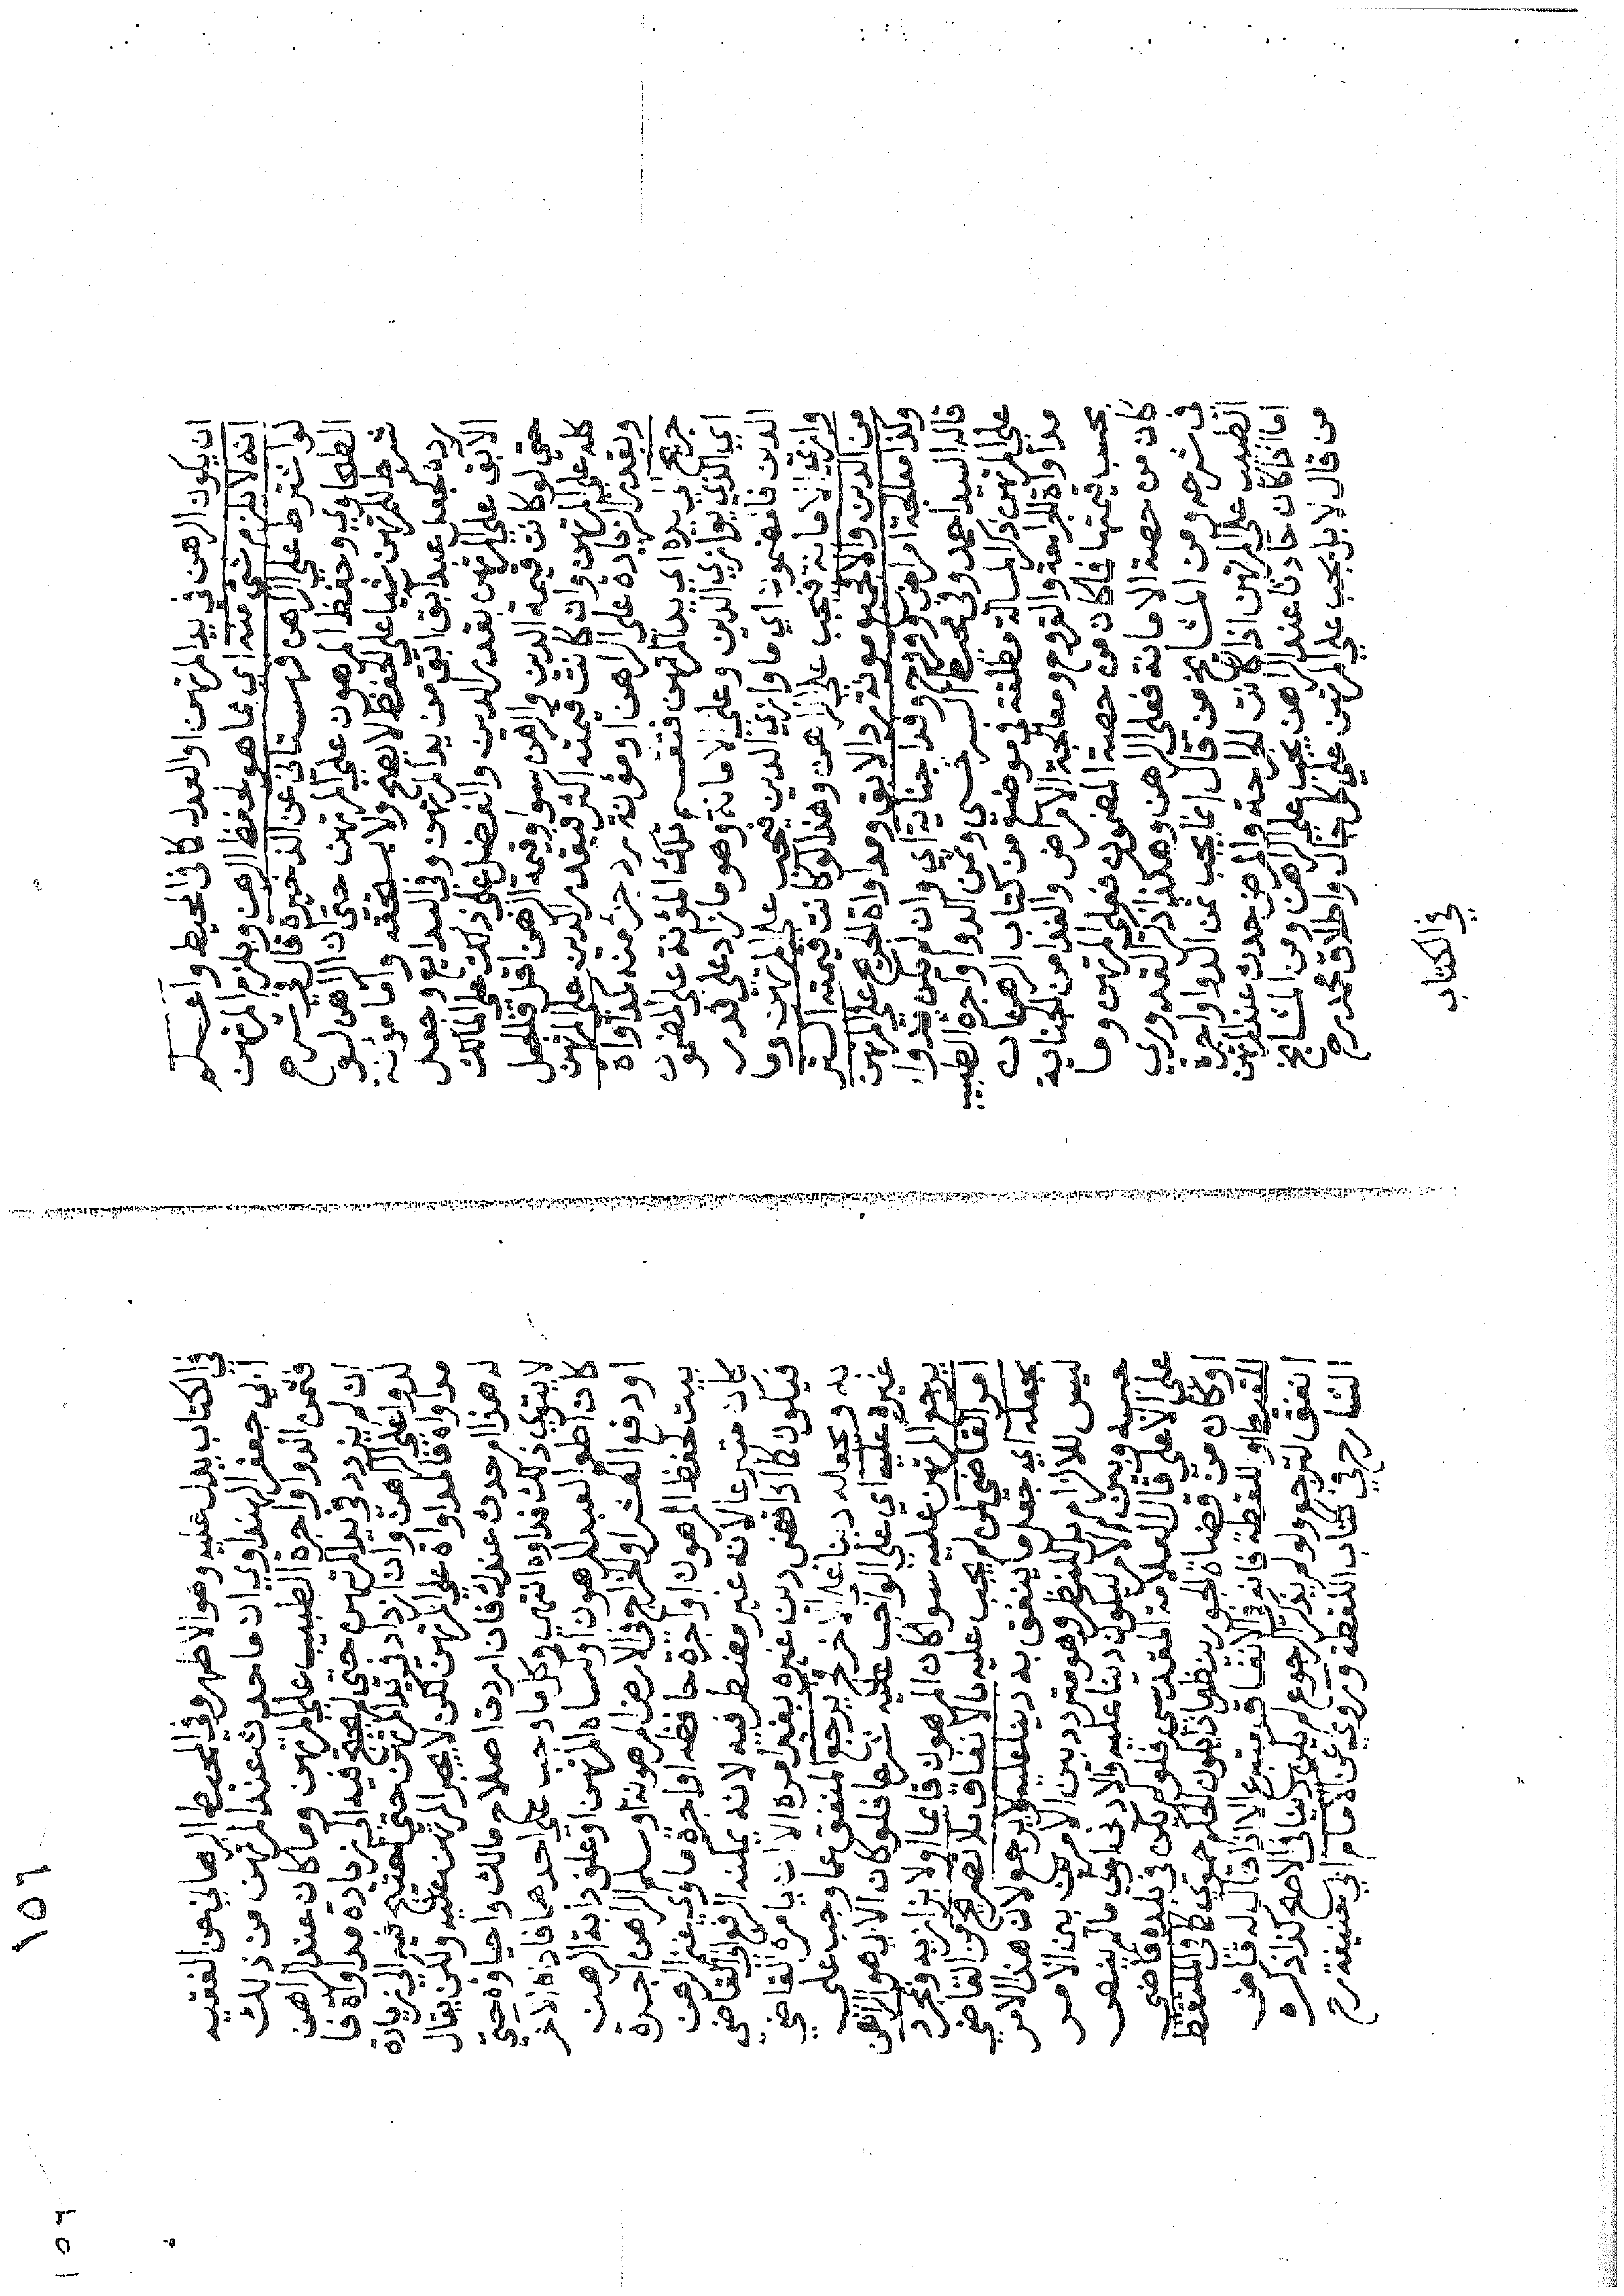 ان يكون الرهن في يد المرتهن او العدل كما في المحيط واعلم
انه لا يلزم شي منه اي مما هو لحفظ الرهن ويلزم المرتهن
لو اشترط على الراهن قهستاني عن الذخيرة قال في شرح
الطحاوي وحفظ المرهون على المرتهن حتى ان الراهن لو
شرط للمرتهن شيئا على الحفظ لا يصح ولا يستحقه واما مؤنة
رده كجعل عبد ابق ابق من يد المرتهن وفي البدايع وجعل
الابق على المرتهن بقدر الدين والفضل على ذلك على المالك
حتى لو كانت قيمة الدين والرهن سوا او قيمة الرهن اقل فالجعل
كله على المرتهن وان كانت قيمته اكثر فبقدر الدين على المرتهن
وبقدر الزيادة على الراهن او مؤنة رد جزء منه كمداواة
جريح الى يده اي يد المرتهن فتقسم تلك المؤنة على المضمون
اي الذي يوازي الدين وعلى الامانة وهو ما زاد على قدر
الدين فالمضمونة اي ما وازي الدين فيجب على المرتهن وما
وازي الامانة فيجب على الراهن وهذا لو كانت قيمته اكثر
من الدين والا فهو مؤنة رد الابق ومداواة الجريح على المرتهن
وكذا معالجة امراض وقروح وفدا جناية اي وان لم يكن بدوا
قاله السيد احمد وفي محيط السرخسي وثمن الدوا واجرة الطبيب
على المرتهن ذكر المسالة مطلقة في موضع من كتاب الرهون
مداواة الجراحة والقروح ومعالجة الامراض والفدا من الجناية
بحسب قيمتها فما كان من حصة المضمون فعلى المرتهن وما
كان من حصة الامانة فعلى الراهن وهكذا ذكر القدوري
في شرحه ومن المشايخ من قال انما يجب ثمن الدوا واجرة
الطبيب على المرتهن اذا كانت الجراحة والمرض حدث عند المرتهن
اما اذا كان حادثا عند الراهن يجب على الراهن ومن المشايخ
من قال لا بل يجب على المرتهن على كل حال واطلاق محمد رح
في الكتاب
١٥٦
١٥٦
في الكتاب يدل عليه وهو الاظهر وفي المحيط البرهاني عن الفقيه
ابي جعفر الهندواني ان ما حدث عند المرتهن من ذلك
فثمن الدوا واجرة الطبيب على المرتهن وما كان عند الراهن
ان لم يزدد في يد المرتهن حتى يحتج فيه الى زيادة مداواة فا
لدوا على الراهن وان ازداد في يد المرتهن حتى احتيج فيه الى زيادة
مداواة فالمداواة على المرتهن لكن لا يجبر المرتهن عليه ولكن يقال
له هذا امر حدث عندك فان اردت اصلاح مالك واحياؤه حتى
لا يتوى ذلك فداوه انتهى وكل ما وجب على احدهما فاداه الاخر
كان اطعم العبد المرهون او كساه المرتهن او علف دابة الرهن
او دفع العشر او الخراج في الارض المرهونة او سلم الراهن اجرة
بيت حفظ المرهون او اجرة حافظه او اجرة ماوى غنم الرهن
كان متبرعا لانه غير مضطر فيه لانه يمكنه الرفع الى القاضي
فيكون كما اذا قضى دين غيره بغير امره الا ان يامره القاضي
به ويجعله دينا على الاخر فيرجع المنفق بما وجب على
غيره عليه اي على الواجب عليه شرعا فلو كان الابي هو الراهن
يرجع المرتهن عليه سوا كان المرهون قائما اولا بزازية وبمجرد
امر القاضي لم يجب عليه بالانفاق بلا تصريح من القاضي
بجعله اي بجعل ما ينفق به دينا عليه لا يرجع لان هذا الامر
ليس للالزام بل للنظر وهو متردد بين الامرين بين الامر
حسبة وبين الامر ليكون دينا عليه والادنى اولى ما لم ينص
على الاعلى قال العلامة المقدسي فلو لم يكن في بلده قاضي
او كان من قضاة الجور ينظر ايكون الحكم حموي كما في الملتقط
للقيط او للقطة فانه في الانفاق متبرع الا اذا قال له قاض
انفق لترجع ولو لم يذكر الرجوع لم يكن دينا في الاصح كذا ذكره
الشارح في كتاب اللقطة وروي عن الامام ابي حنيفة رح